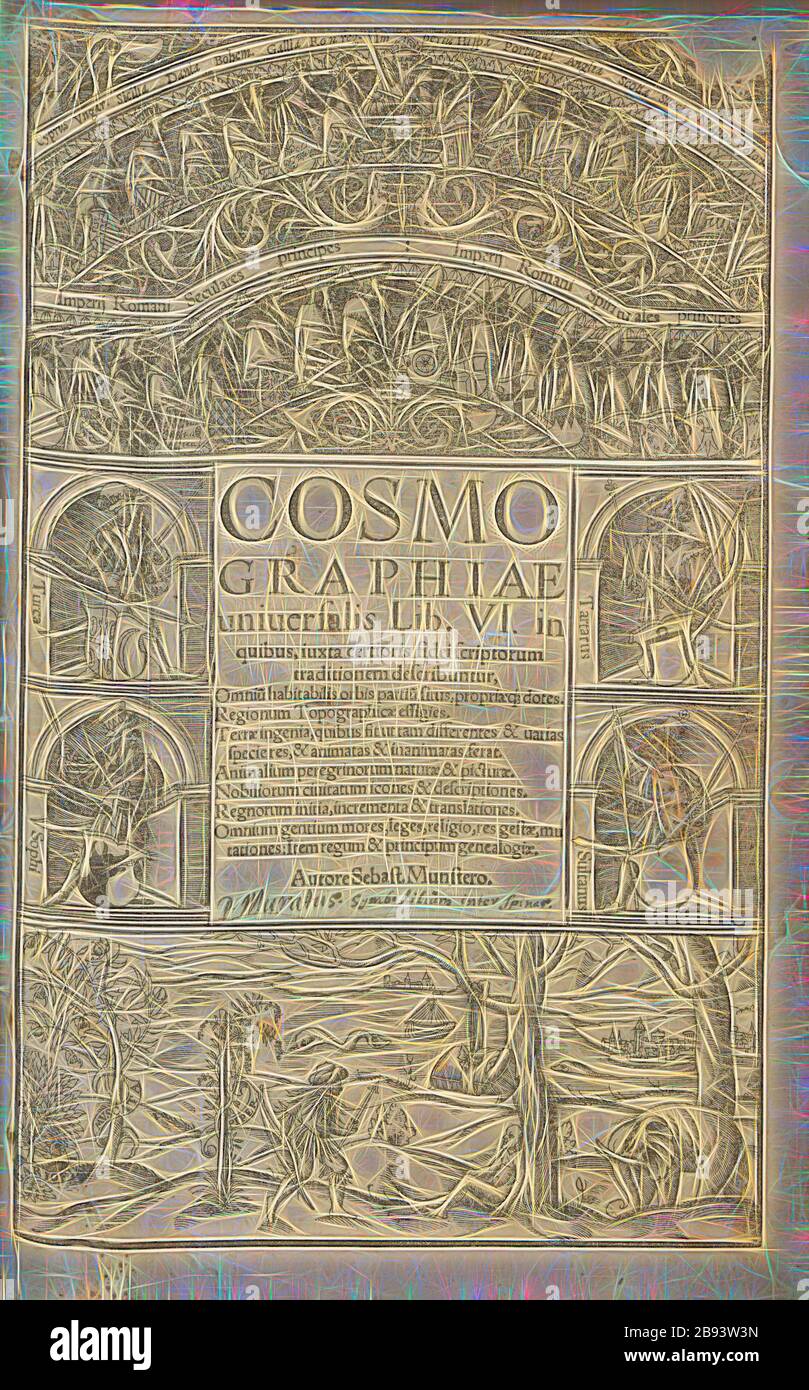 Vngar. Daniæ Bohem. Galliæ Hisp. Portugal Angliæ
Imperij Romani Seculares principes Imperij Romani spirituales principes
COSMO
GRAPHIAE
uniuersalis Lib. VI. in
quibus, iuxta certioris fidei scriptorum
traditionem describuntur,
Omniũ habitabilis orbis partiũ situs, propriæq́; dotes.
Regionum Topographicæ effigies.
Terræ ingenia, quibus fit ut tam differentes & uarias
specie res, & animatas & inanimatas, ferat.
Animalium peregrinorum naturæ & picturæ.
Nobiliorum ciuitatum icones & descriptiones.
Regnorum initia, incrementa & translationes.
Omnium gentium mores, leges, religio, res gestæ, mu
tationes: Item regum & principum genealogiæ.
Autore Sebast. Munstero.
inter spinas.
Turca
Tartarus
Sophi
Sultanus
alamy
Image ID: 2B93W3N
www.alamy.com